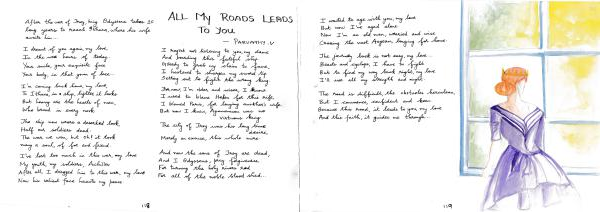 ALL MY ROADS LEADS
TO YOU
— PARVATHY.V
After the war of Troy, king Odysseus takes 20
long years to reach Ithaca, where his wife
awaits him...
I dreamt of you again, my love
In the wee hours of today.
Your smile, your exquisite face
Your body, in that gown of lace.
I'm coming back home, my love,
To Ithaca, in a ship, lighter it looks
But heavy are the hearts of men,
Who board in every nook
The sky now wears a deserted look,
Half our soldiers dead.
The war we won, but oh! it took
many a soul, of foe and friend
I've lost too much in this war, my love
My youth, my soldiers, Achilles
After all, I dragged him to this war, my love
Now his valiant face haunts my peace
118
I regret not listening to you, my dame
And boarding this fateful ship
Already to paint my palms in fame,
I hastened to sharpen my sword tip
Setting out to fight the wrong thing
For now, I'm older and wiser, I know
I used to blame Helen for this ruth.
I blamed Paris, for staying another's wife.
But now I know, Agamemnon was no
virtuous king
The city of Troy was his long time
desire,
Merely an excuse, this whole war.
And now the sons of Troy are dead,
And I Odysseus, pray forgiveness
For turning the holy rivers red
For all of the noble blood shed...
I wanted to age with you, my love
But now I've aged alone
Now I'm an old man, wearied and wise
Crossing the vast Aegean longing for home.
The journey back is not easy, my love
Beasts and cyclops, I have to fight
But to find my way back to you, my love
I'll use all my strength and might
The road is difficult, the obstacles herculean,
But I converse, confident and keen
Because this road, it leads to you my love
And this faith, it guides me through.
119